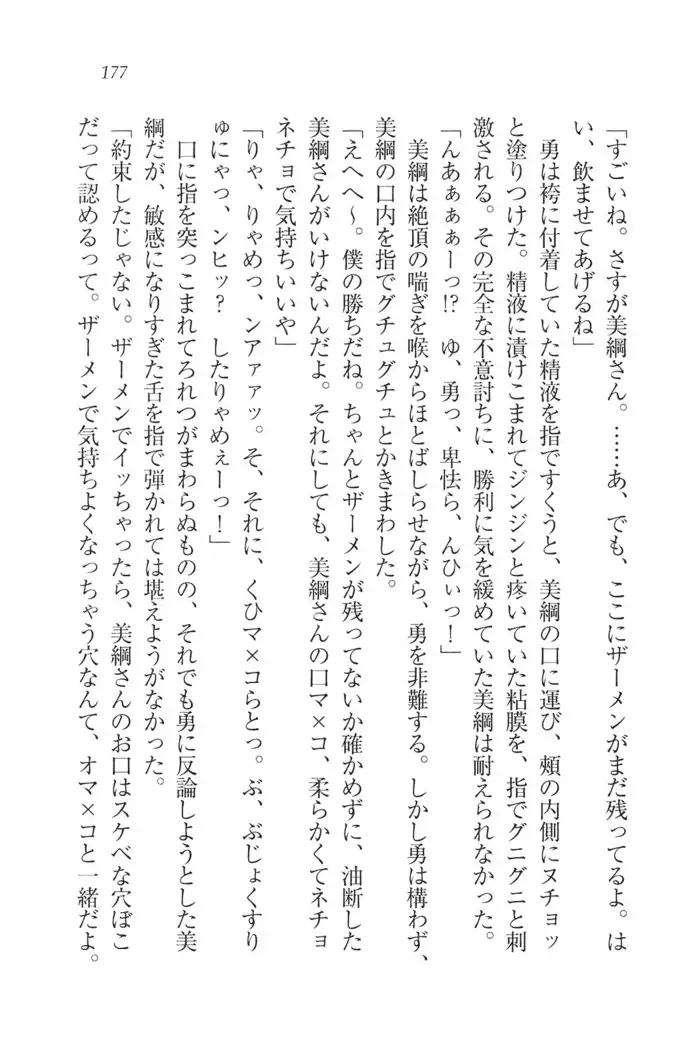 177
「すごいね。さすが美綱さん。……あ、でも、ここにザーメンがまだ残ってるよ。は
い、飲ませてあげるね」
勇は袴に付着していた精液を指ですくうと、美綱の口に運び、頬の内側にヌチョッ
と塗りつけた。精液に漬けこまれてジンジンと疼いていた粘膜を、指でグニグニと刺
激される。その完全な不意討ちに、勝利に気を緩めていた美綱は耐えられなかった。
「んあぁぁぁーっ!?　ゆ、勇っ、卑怯ら、んひぃっ！」
美綱は絶頂の喘ぎを喉からほとばしらせながら、勇を非難する。しかし勇は構わず、
美綱の口内を指でグチュグチュとかきまわした。
「えへへ～。僕の勝ちだね。ちゃんとザーメンが残ってないか確かめずに、油断した
美綱さんがいけないんだよ。それにしても、美綱さんの口マ×コ、柔らかくてネチョ
ネチョで気持ちいいや」
「りゃ、りゃめっ、ンアァァッ。そ、それに、くひマ×コらとっ。ぶ、ぶじょくすり
ゅにゃっ、ンヒッ？　したりゃめぇーっ！」
口に指を突っこまれてろれつがまわらぬものの、それでも勇に反論しようとした美
綱だが、敏感になりすぎた舌を指で弾かれては堪えようがなかった。
「約束したじゃない。ザーメンでイッちゃったら、美綱さんのお口はスケベな穴ぼこ
だって認めるって。ザーメンで気持ちよくなっちゃう穴なんて、オマ×コと一緒だよ。